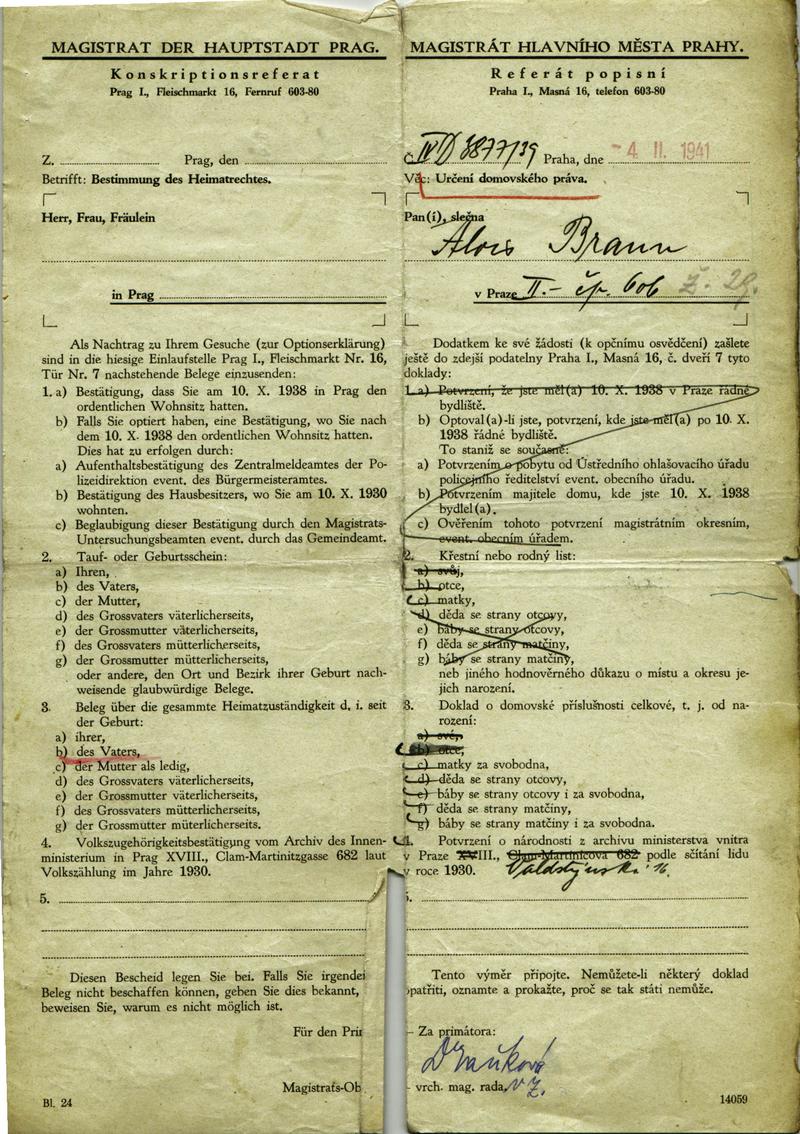 MAGISTRAT DER HAUPTSTADT PRAG.
Konskriptionsreferat
Prag I., Fleischmarkt 16, Fernruf 603-80
Z. Prag, den
Betrifft: Bestimmung des Heimatrechtes.
Herr, Frau, Fräulein
in Prag
Als Nachtrag zu Ihrem Gesuche (zur Optionserklärung)
sind in die hiesige Einlaufstelle Prag I., Fleischmarkt Nr. 16,
Tür Nr. 7 nachstehende Belege einzusenden:
1. a) Bestätigung, dass Sie am 10. X. 1938 in Prag den
ordentlichen Wohnsitz hatten.
b) Falls Sie optiert haben, eine Bestätigung, wo Sie nach
dem 10. X. 1938 den ordentlichen Wohnsitz hatten.
Dies hat zu erfolgen durch:
a) Aufenthaltsbestätigung des Zentralmeldeamtes der Po-
lizeidirektion event. des Bürgermeisteramtes.
b) Bestätigung des Hausbesitzers, wo Sie am 10. X. 1930
wohnten.
c) Beglaubigung dieser Bestätigung durch den Magistrats-
Untersuchungsbeamten event. durch das Gemeindeamt.
2. Tauf- oder Geburtsschein:
a) Ihren,
b) des Vaters,
c) der Mutter,
d) des Grossvaters väterlicherseits,
e) der Grossmutter väterlicherseits,
f) des Grossvaters mütterlicherseits,
g) der Grossmutter mütterlicherseits,
oder andere, den Ort und Bezirk ihrer Geburt nach-
weisende glaubwürdige Belege.
3. Beleg über die gesammte Heimatzuständigkeit d. i. seit
der Geburt:
a) ihrer,
b) des Vaters,
c) der Mutter als ledig,
d) des Grossvaters väterlicherseits,
e) der Grossmutter väterlicherseits,
f) des Grossvaters mütterlicherseits,
g) der Grossmutter müterlicherseits.
4. Volkszugehörigkeitsbestätigung vom Archiv des Innen-
ministerium in Prag XVIII., Clam-Martinitzgasse 682 laut
Volkszählung im Jahre 1930.
5.
Diesen Bescheid legen Sie bei. Falls Sie irgendei
Beleg nicht beschaffen können, geben Sie dies bekannt,
beweisen Sie, warum es nicht möglich ist.
Für den Pri
Magistrats-Ob
Bl. 24
MAGISTRÁT HLAVNÍHO MĚSTA PRAHY.
Referát popisní
Praha I., Masná 16, telefon 603-80
Č. IV D 8877/39 Praha, dne -4 II. 1941
Věc: Určení domovského práva.
Pan(í), slečna
Alois Braun
v Praze II.- čp. 606 ž. 29.
Dodatkem ke své žádosti (k opčnímu osvědčení) zašlete
ještě do zdejší podatelny Praha I., Masná 16, č. dveří 7 tyto
doklady:
1. a) Potvrzení, že jste měl(a) 10. X. 1938 v Praze řádné
bydliště.
b) Optoval(a)-li jste, potvrzení, kde jste měl(a) po 10. X.
1938 řádné bydliště.
To staniž se současně:
a) Potvrzením o pobytu od Ústředního ohlašovacího úřadu
policejního ředitelství event. obecního úřadu.
b) Potvrzením majitele domu, kde jste 10. X. 1938
bydlel(a).
c) Ověřením tohoto potvrzení magistrátním okresním,
event. obecním úřadem.
2. Křestní nebo rodný list:
a) svůj,
b) otce,
c) matky,
d) děda se strany otcovy,
e) báby se strany otcovy,
f) děda se strany matčiny,
g) báby se strany matčiny,
neb jiného hodnověrného důkazu o místu a okresu je-
jich narození.
3. Doklad o domovské příslušnosti celkové, t. j. od na-
rození:
a) své,
b) otce,
c) matky za svobodna,
d) děda se strany otcovy,
e) báby se strany otcovy i za svobodna,
f) děda se strany matčiny,
g) báby se strany matčiny i za svobodna.
4. Potvrzení o národnosti z archivu ministerstva vnitra
v Praze XVIII., Clam-Martinicova 682 podle sčítání lidu
v roce 1930. Valdštýnská 16.
Tento výměr připojte. Nemůžete-li některý doklad
opatřiti, oznamte a prokažte, proč se tak státi nemůže.
Za primátora:
vrch. mag. rada. v z.
14059